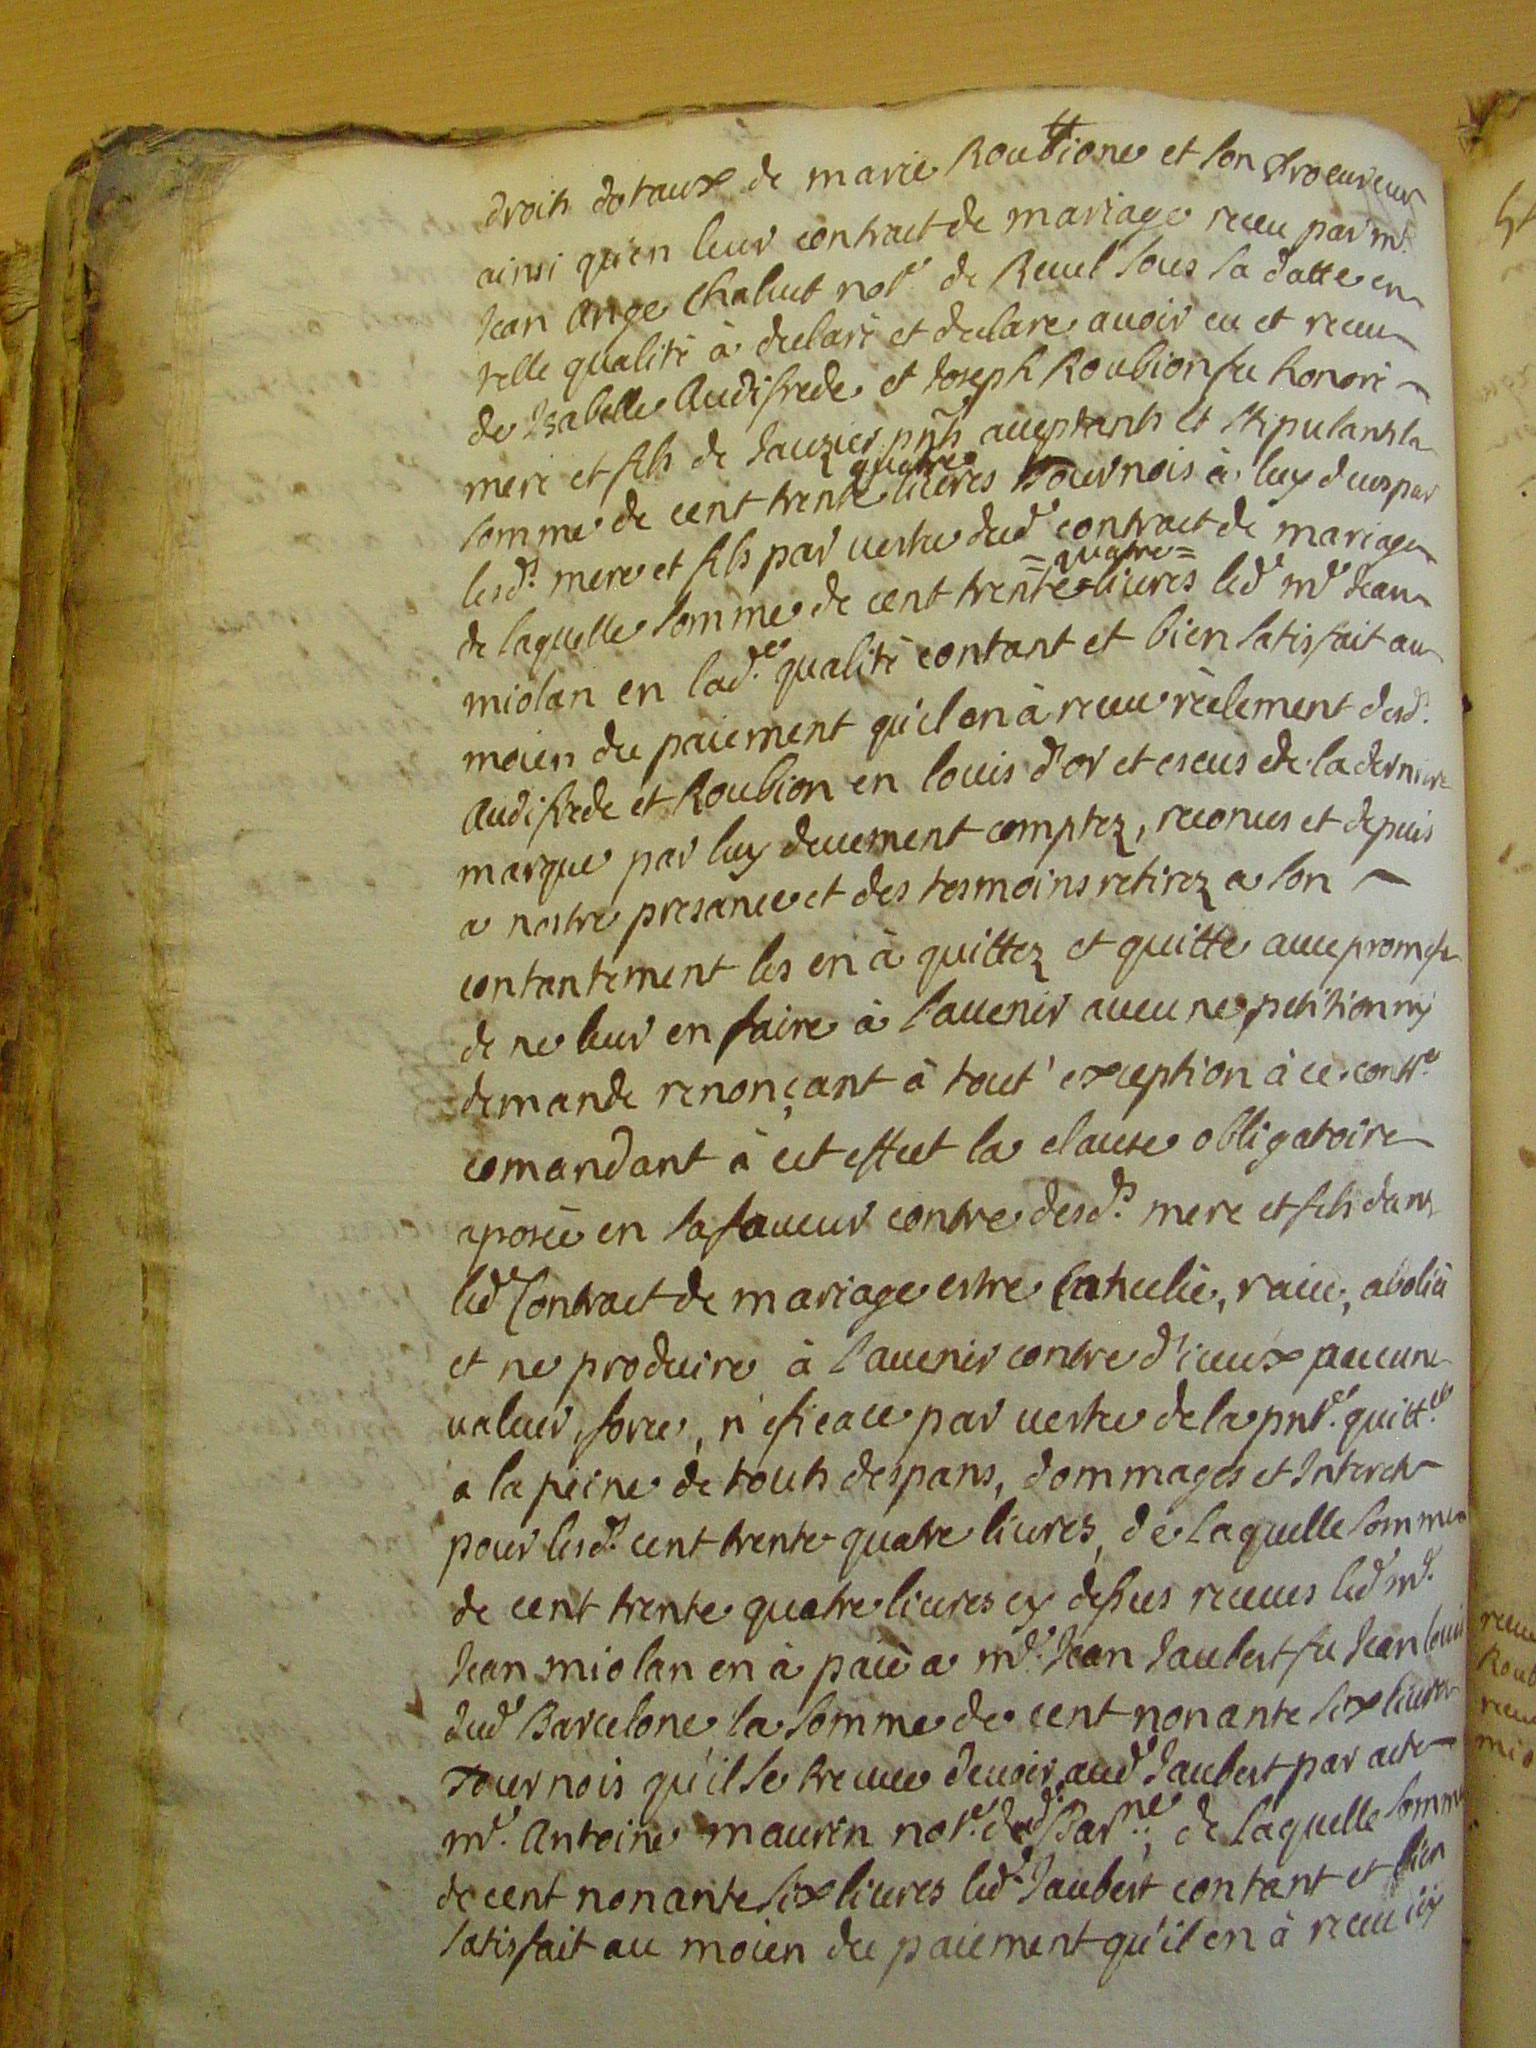 droits dotaux de marie Roubione et son procureur
ainsi qu'en leur contract de mariage receu par mͬ
Jean Ange Chabut notᵉ de Revel sous sa datte en
telle qualité à declaré et declare avoir eu et receu
de Isabelle Audifrede et Joseph Roubion fu honoré
mere et fils de Jauzier pñts aceptants et stipulants la
quatre
somme de cent trente livres tournois à luy deus par
lesdˢ mere et fils par vertu dudᵗ contract de mariage
= quatre =
de laquelle somme de cent trente livres ledᵗ mͬ Jean
miolan en ladᵉ qualité contant et bien satisfait au
moien du paiement qu'il en à receu réelement desdˢ
Audifrede et Roubion en louis d'or et escus de la derniere
marque par luy deuement comptez, reconus et depuis
a nostre presance et des tesmoins retirez a son
contantement les en à quittez et quitte avec promesse
de ne leur en faire à l'avenir aucune petition ny
demande renonçant à tout' exception à ce contrᵉ
comandant à cet effect la clause obligatoire
aposée en sa faveur contre desdˢ mere et fils dans
ledᵗ Contract de mariage estre cancelée, raiée, abolie
et ne produire à l'avenir contre d'iceux aucune
valeur, force, n'eficace par vertu de la pntᵉ quittᶜᵉ
a la peine de touts despans, dommages et Interets
pour lesdˢ cent trente quatre livres, de laquelle somme
de cent trente quatre livres cy dessus receues ledᵗ mͬ
Jean miolan en à paié a mͬ Jean Jaubert fu Jean louis
dudᵗ Barcelone la somme de cent nonante six livres
tournois qu'il se treuve devoir audᵗ Jaubert par acte
mͬ Antoine maurin notᵉ dudᵗ Barⁿᵉ, de laquelle somme
de cent nonante six livres ledᵗ Jaubert contant et bien
satisfait au moien du paiement qu'il en à receu icy
receu
Roub
receu
mio